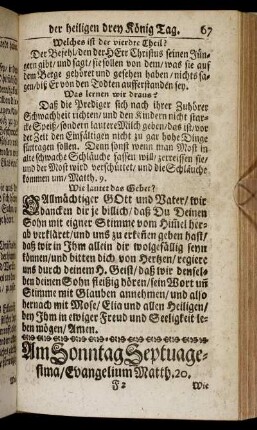 der heiligen drey König Tag. 67
Welches ist der vierdte Theil?
Der Befehl/ den der HErr Christus seinen Jün-
gern gibt/ und sagt/ sie sollen von dem/ was sie auf
dem Berge gehöret und gesehen haben/ nichts sa-
gen/ biß Er von den Todten aufferstanden sey.
Was lernen wir draus?
Daß die Prediger sich nach ihrer Zuhörer
Schwachheit richten/ und den Kindern nicht star-
cke Speiß/ sondern lauter Milch geben/ das ist/ vor
der Zeit den Einfältigen nicht zu gar hohe Dinge
fürtragen sollen. Denn sonst wenn man Most in
alte schwache Schläuche fassen will/ zerreissen sie/
und der Most wird verschüttet/ und die Schläuche
kommen um/ Matth. 9.
Wie lautet das Gebet?
O Allmächtiger GOtt und Vater/ wir
dancken dir je billich/ daß Du Deinen
Sohn mit eigner Stimme vom Him̄el her-
ab verkläret/ und uns zu erkeñen geben hast/
daß wir in Ihm allein dir wolgefällig seyn
können/ und bitten dich von Hertzen/ regiere
uns durch deinem H. Geist/ daß wir densel-
ben deinen Sohn fleißig hören/ sein Wort uñ
Stimme mit Glauben annehmen/ und also
hernach mit Mose/ Elia und allen Heiligen/
bey Ihm in ewiger Freud und Seeligkeit le-
ben mögen/ Amen.
Am Sonntag Septuage-
sima/ Evangelium Matth. 20.
F 2 Wie